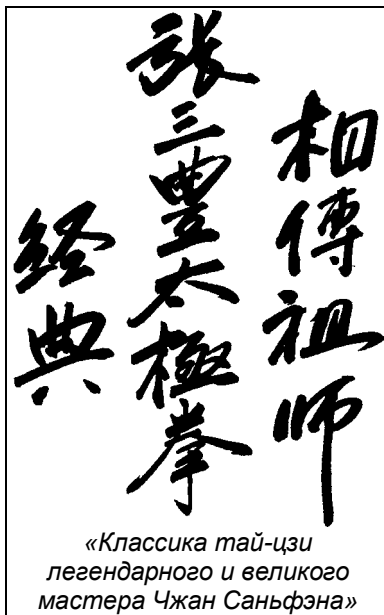 相傳祖师
張三豐太極拳
经典
«Классика тай-цзи
легендарного и великого
мастера Чжан Саньфэна»